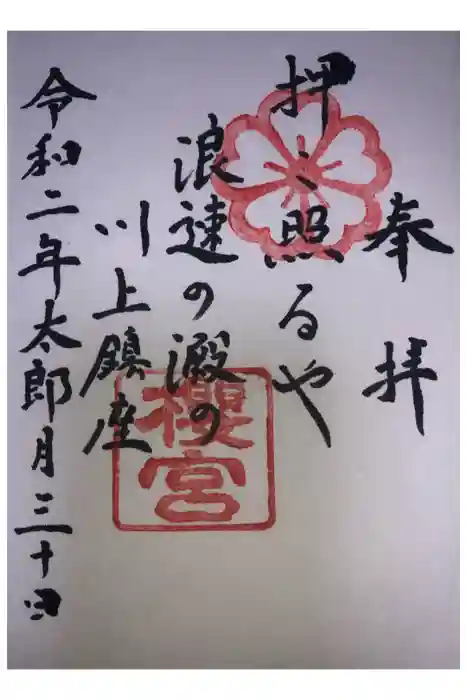 奉拝
押し照るや
浪速の澱の
川上鎮座
令和二年太郎月三十日
櫻宮